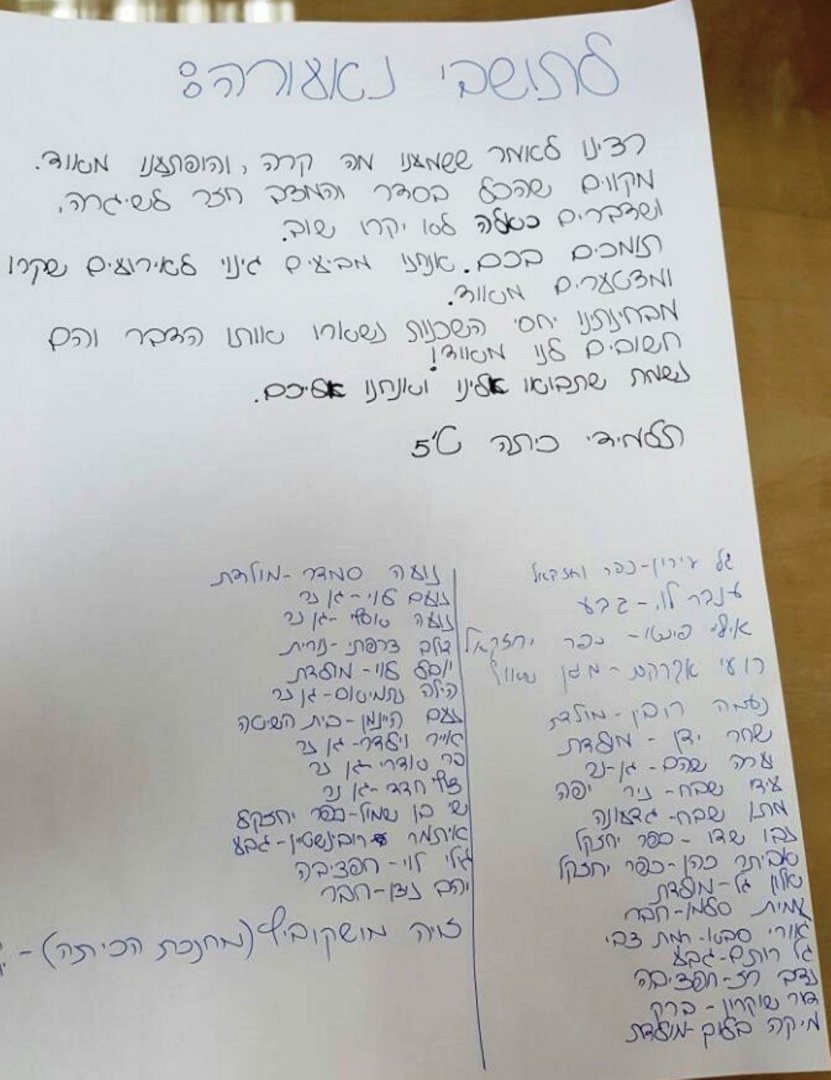 לתושבי נאעורה:
רצינו לאמר ששמענו מה קרה, והופתענו מאוד.
מקווים שהכל בסדר והמצב חזר לשיגרה,
ושדברים כאלה לא יקרו שוב.
תומכים בכם. אנחנו מביעים גינוי לאירועים שקרו
ומצטערים מאוד.
מבחינתנו יחסי השכנות נשארו אותו הדבר והם
חשובים לנו מאוד!
נשמח שתבואו אלינו ואנחנו אליכם.
תלמידי כיתה ט'5
גל עירין-כפר יחזקאל
ענבר לוי-גבע
פינטו-כפר יחזקאל
רועי אברהם-מגן שאול
נעמה רובין-מולדת
שחר ידן-מולדת
שהם-גן-נר
עידו שבח-ניר יפה
מתן שבח-גדעונה
נבו שדו-כפר יחזקאל
אביתר כהן-כפר יחזקאל
אלון גל-מולדת
עמית סלמן-חבר
אורי סבטו-רמת צבי
גל רותם-גבע
נדב רז-חפציבה
דור שוקרון-ברק
מיקה בלוך-מולדת
נועה סמדר-מולדת
נועם לוי-גן נר
נועה יוסף-גן נר
צרפתי-נורית
יובל לוי-מולדת
הילה נחמיאס-גן נר
נועם היינמן-בית השיטה
אייר וילדר-גן נר
בר סודרי-גן נר
חדד-גן נר
שי בן שמול-כפר יחזקאל
איתמר רובינשטיין-גבע
גילי לוי-חפציבה
יהב ניצן-חבר
זויה מושקוביץ (מחנכת הכיתה)-